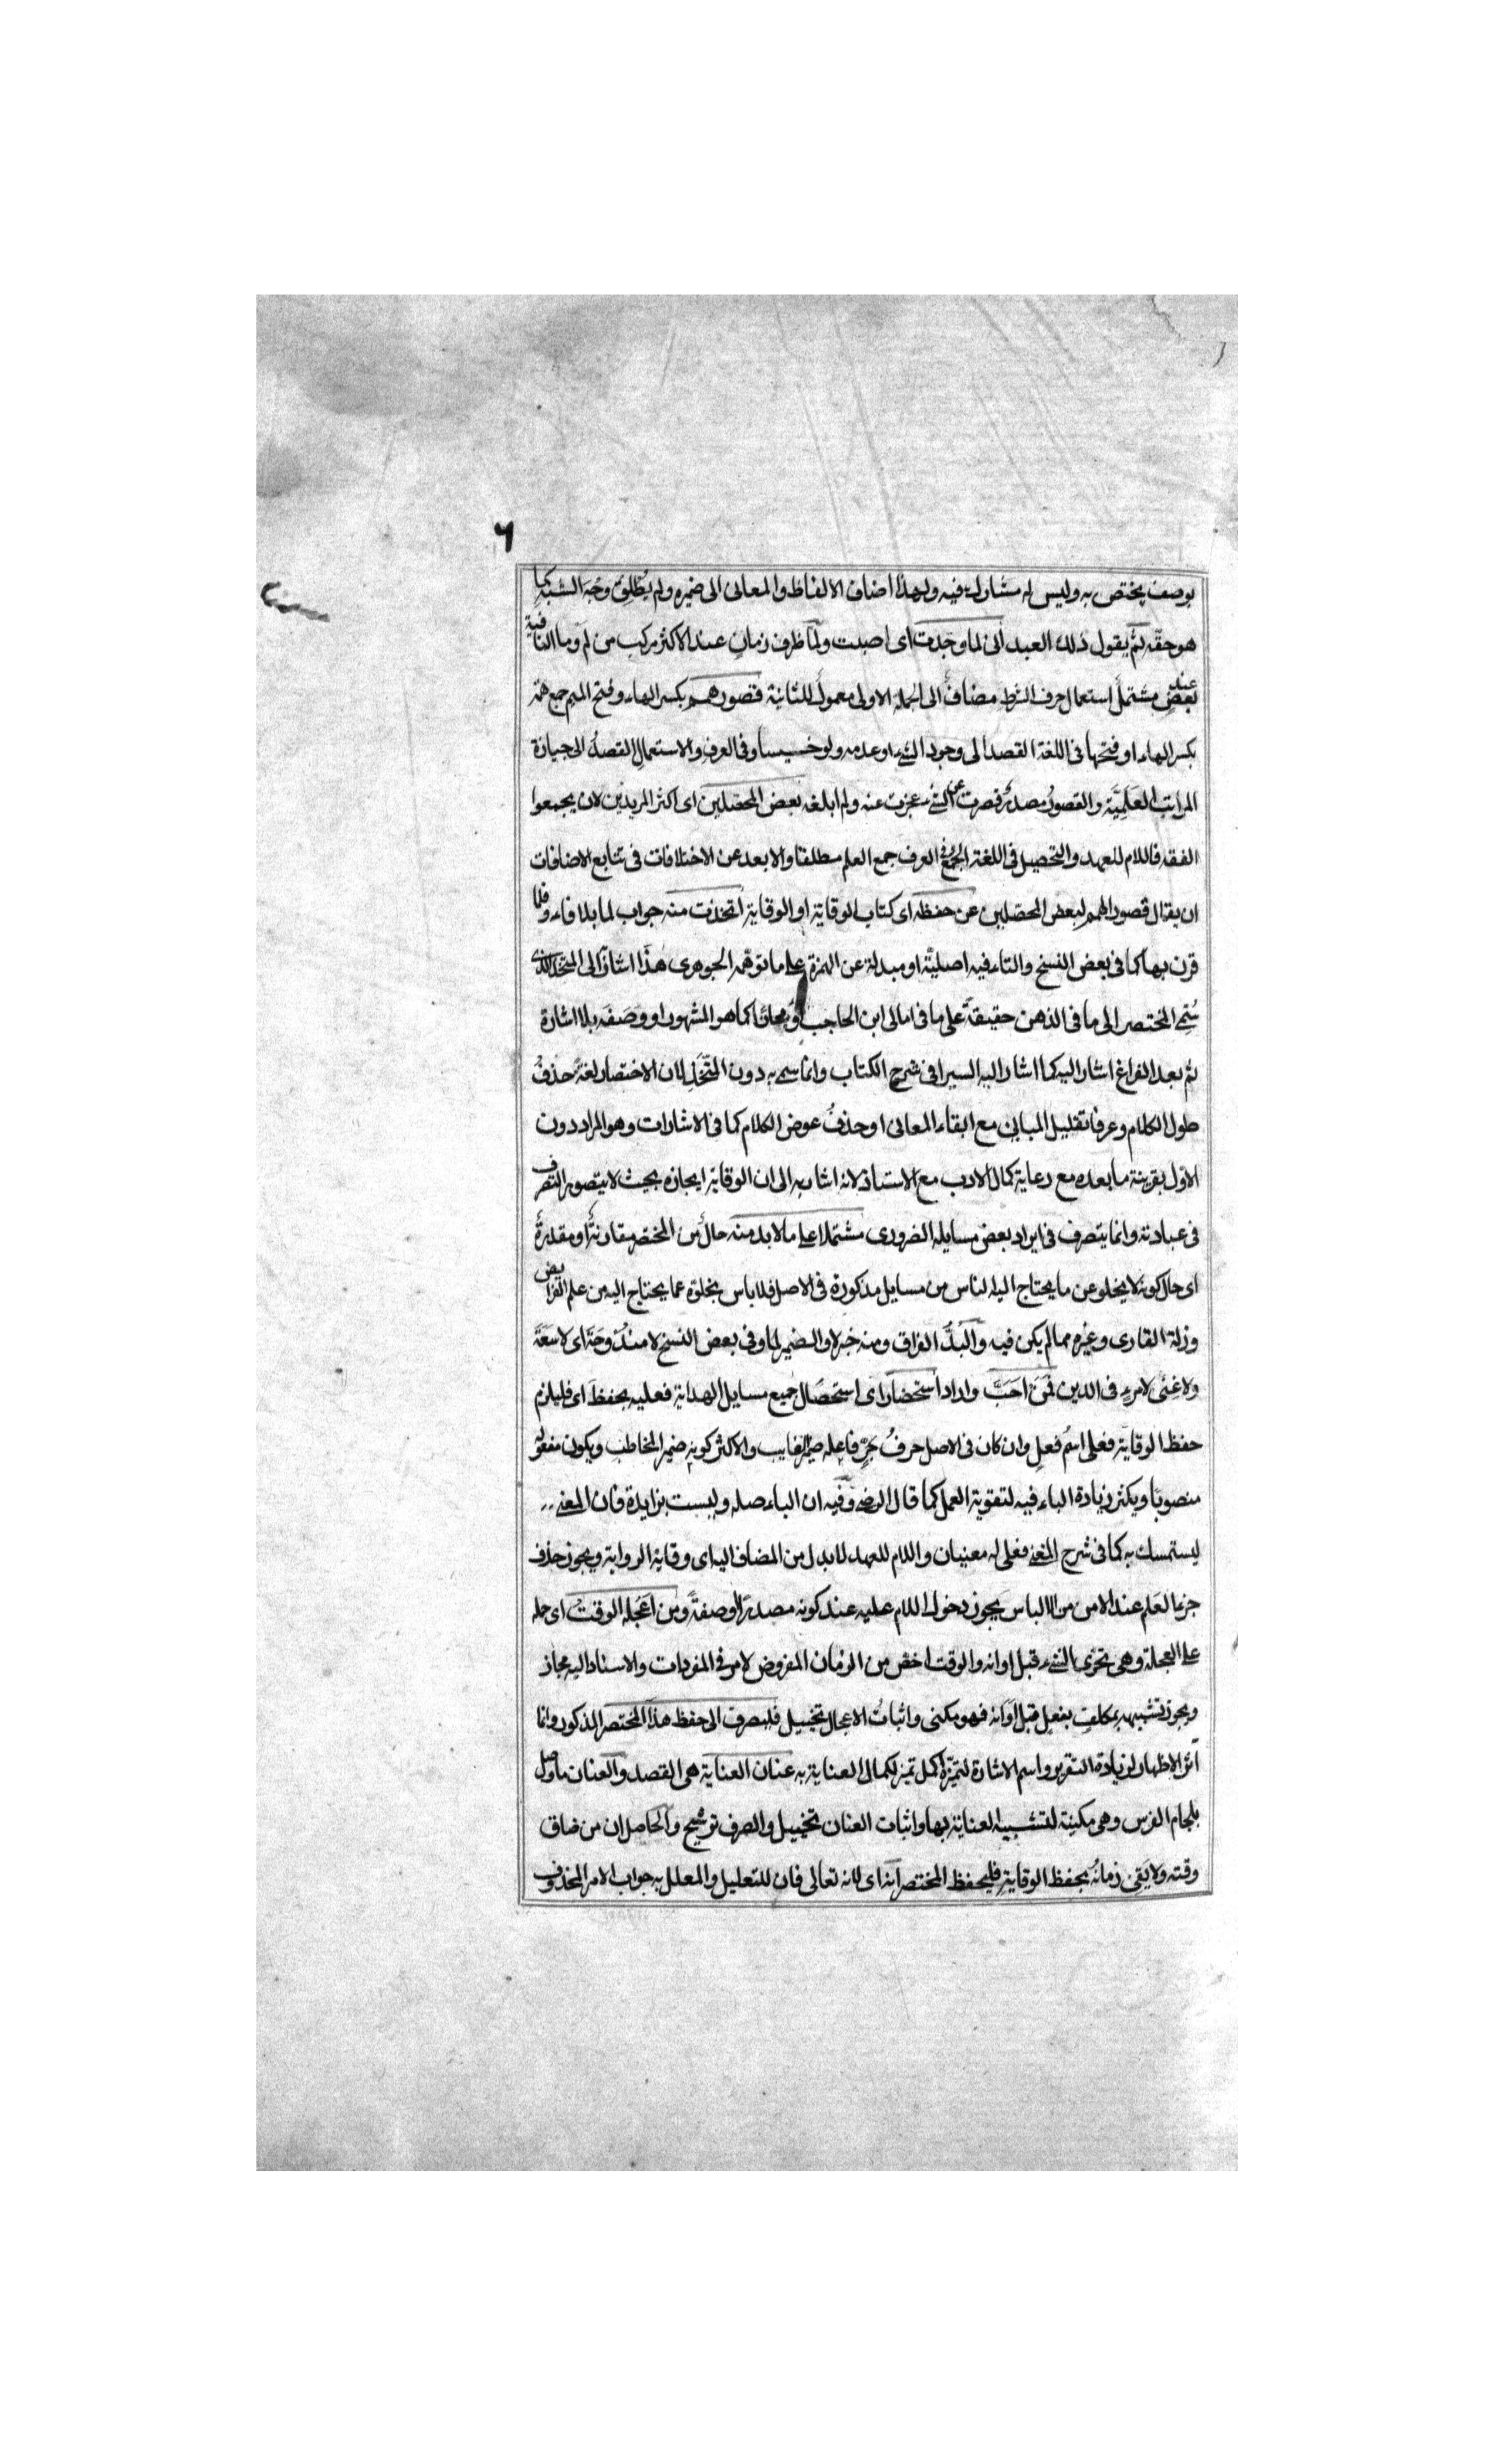 ٦
بوصف يختص به وليس له مشارك فيه ولهذا اضاف الالفاظ والمعانى الى ضميره ولم يُطلِق وجْهَ الشبه كما
هو حقّه ثم يقول ذلك العبد انى لما وجدت اى اصبت ولَمّا ظرف زمانٍ عند الاكثر مركب من لَم وما النافية
عند بعضٍ مشتملٌ استعمال حرف الشرط مضافٌ الى الجملة الاولى معمولٌ للثانية قصور همم بكسر الهاء وفتح الميم جمع همّة
بكسر الهاء او فتحها فى اللغة القصد الى وجود الشئ او عدمه ولو خسيسا وفى العرف والاستعمال القصدُ الى حيازة
المراتب العَلِيّة والقصورُ مصدرُ قصرت عن الشئ عجزت عنه ولم ابلغه بعض المحصلين اى اكثر المريدين لان يجمعوا
الفقه فاللام للعهد والتحصيل فى اللغة الجمع وفى العرف جمع العلم مطلقا والابعد عن الاختلافات فى تتابع الاضافات
ان يقال قصور الهمم لبعض المحصّلين عن حفظه اى كتاب الوقاية او الوقاية اتخذت منه جواب لما بلا فاء وقلما
قرن بها كما فى بعض النسخ والتاء فيه اصليّة او مبدلة عن الهمزة على ما توهّمه الجوهرى هذا اشارة الى المتخذ الذى
سُمّى المختصر الى ما فى الذهن حقيقةً على ما فى امالى ابن الحاجب او مجازا كما هو المشهور او وَصَفَه بلا اشارة
ثم بعد الفراغ اشار اليه كما اشار اليه السيرافى فى شرح الكتاب وانما سمى به دون المتّخَذ لان الاختصار لغةً حذفُ
طول الكلام وعرفا تقليل المبانى مع ابقاء المعانى او حذفُ عوض الكلام كما فى الاشارات وهو المراد دون
الاوّل بقرينة ما بعده مع رعاية كمال الادب مع الاستاذ لانه اشار به الى ان الوقاية ايجازه بحيث لا يتصور التصرف
فى عبارته وانما يتصرف فى ايراد بعض مسايله الضرورى مشتملا على ما لا بد منه حالٌ من المختصر مقارنةٌ او مقدرةٌ
اى حال كونه لا يخلو عن ما يحتاج اليه الناس من مسايل مذكورة فى الاصل فلا باس بخلوّه عما يحتاج اليه من علم الفرايض
وزلة القارى وغيره مما لم يكن فيه والبُدُّ الفراق ومنه خبر لا والضمير لما وفى بعض النسخ لا مندُوحَةَ اى لا سَعَةَ
ولا غِنًى لامرء فى الدين فمَن احَبّ واراد استحضار اى استحصال جميع مسايل الهداية فعليه بحفظ اى فليلزم
حفظ الوقاية فعلى اسمُ فعلٍ وان كان فى الاصل حرفُ جَرٍّ فاعله ضمير الغايب والاكثر كونه ضمير المخاطب ويكون مفعوله
منصوبا ويكثر زيادة الباء فيه لتقوية العمل كما قال الرضى وفيه ان الباء صله وليست بزايدة فان المعنى
ليستمسك به كما فى شرح المغنى فعلى له معنيان واللام للعهد لا بدل من المضاف اليه اى وقاية الرواية ويجوز حذف
جزء العَلم عند الامن من الالباس يجوز دخول اللام عليه عند كونه مصدرًا او صفةً ومن اعْجَله الوقتُ اى حمله
على العجلة وهى تحرّى الشئ قبل اوانه والوقت اخصّ من الزمان المفروض لامر فى المفردات والاسناد اليه مجاز
ويجوز تشبيهه بمكلف بفعلٍ قبل اوانه فهو مكنى واثباتُ الاعجال تخييل فليصرف الى حفظ هذا المختصر المذكور وانما
آثر الاظهار لزيادة التقرير واسم الاشارة لتميّزه اكمل تميز لكمال العناية به عنان العناية هى القصد والعنان ما وصل
بلجام الفرس وهى مكنية لتشبيه العناية بها واثبات العنان تخييل والصرف ترشيح والحاصل ان من ضاق
وقته ولا يَفِى زمانُه بحفظ الوقاية فليحفظ المختصر انه اى لانه تعالى فان للتعليل والمعلل به جواب الامر المحذوف